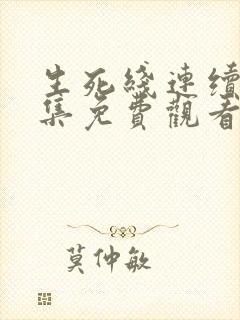 生死綫連續
集免費觀看
莫仲敏